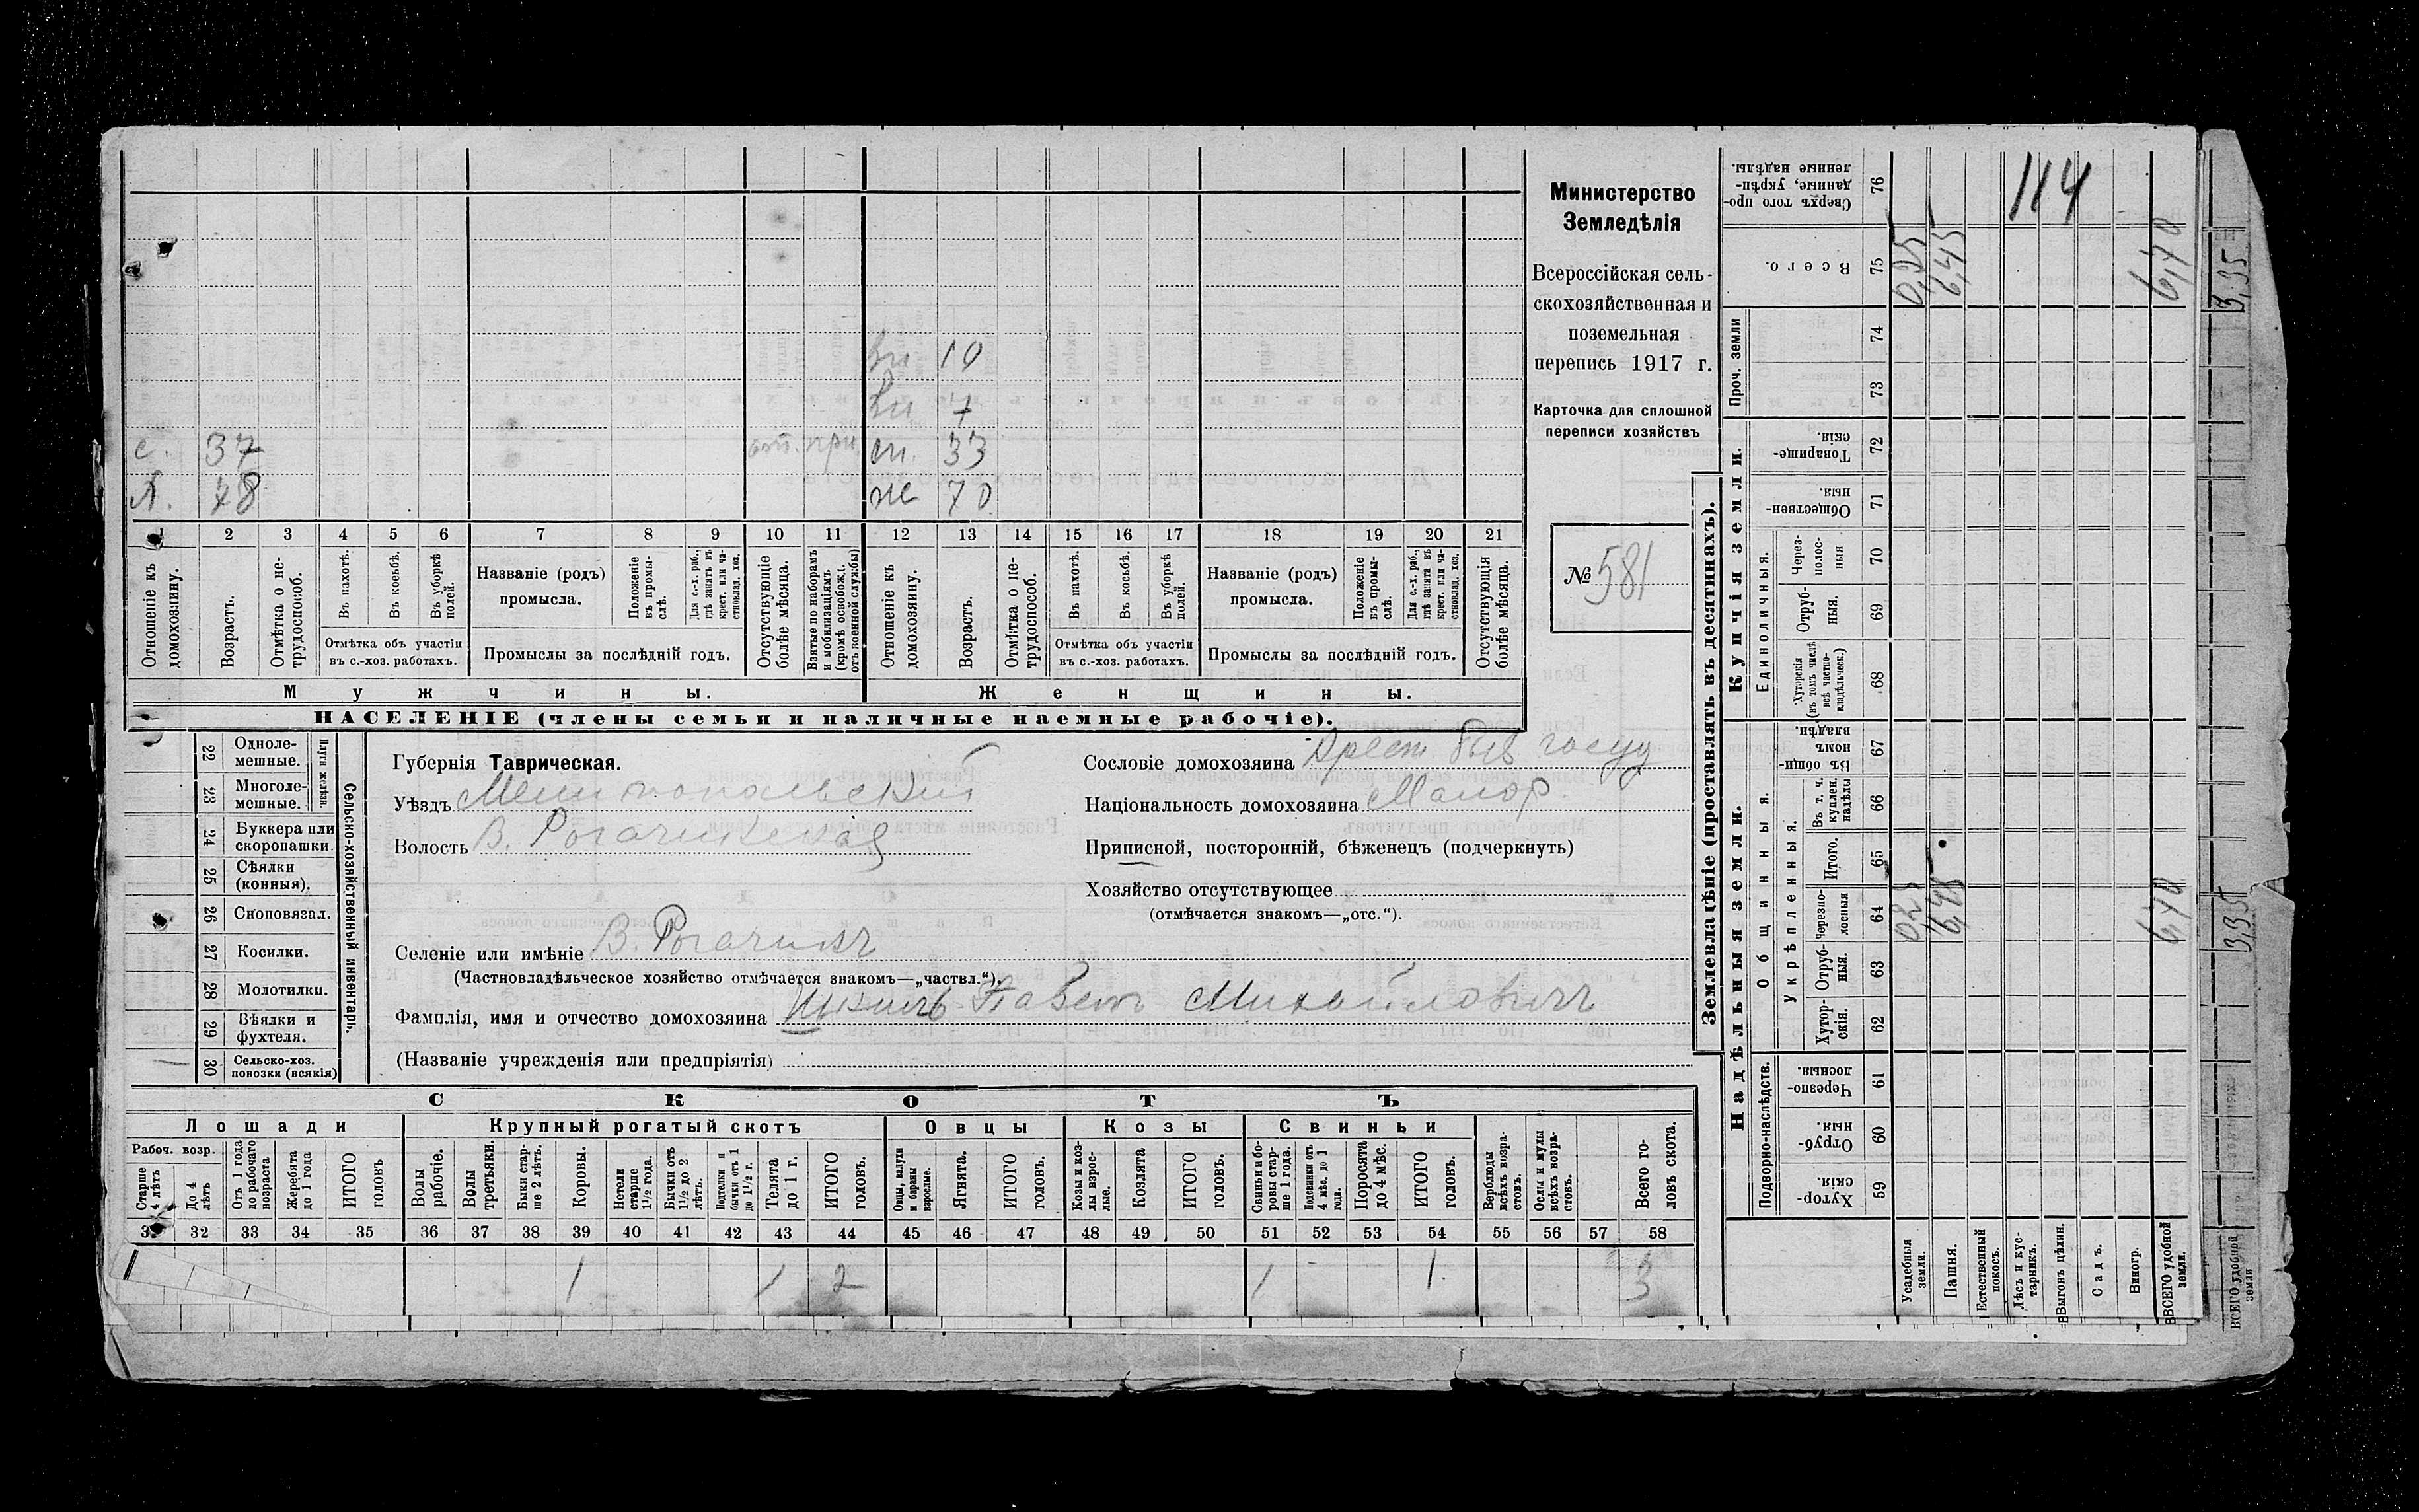 Министерство
Земледѣлія
Всероссійская сель-
скохозяйственная и
поземельная
перепись 1917 г.
Карточка для сплошной
переписи хозяйствъ
№ 581
114
вн 10
вн 7
с. 37 от. при. сн. 33
Л. 78 ж 70
2 3 4 5 6 7 8 9 10 11 12 13 14 15 16 17 18 19 20 21
Отношеніе къ домохозяину.
Возрастъ.
Отмѣтка о не-трудоспособ.
Въ пахотѣ.
Въ косьбѣ.
Въ уборкѣ полей.
Отмѣтка объ участіи
въ с.-хоз. работахъ.
Названіе (родъ)
промысла.
Положеніе въ промы-слѣ.
Для с.-х. раб., гдѣ занятъ въ крест. или ча-ствовлад. хоз.
Промыслы за послѣдній годъ.
Отсутствующіе болѣе мѣсяца.
Взятые по наборамъ и мобилизаціямъ (кромѣ освобожд. отъ военной службы)
Отношеніе къ домохозяину.
Возрастъ.
Отмѣтка о не-трудоспособ.
Въ пахотѣ.
Въ косьбѣ.
Въ уборкѣ полей.
Отмѣтка объ участіи
въ с.-хоз. работахъ.
Названіе (родъ)
промысла.
Положеніе въ промы-слѣ.
Для с.-х. раб., гдѣ занята въ крест. или ча-ствовлад. хоз.
Промыслы за послѣдній годъ.
Отсутствующія болѣе мѣсяца.
Мужчины. Женщины.
НАСЕЛЕНІЕ (члены семьи и наличные наемные рабочіе).
Сельско-хозяйственный инвентарь.
Плуги желѣзн.
22 Одноле-мешные.
23 Многоле-мешные.
24 Буккера или скоропашки.
25 Сѣялки (конныя).
26 Сноповязал.
27 Косилки.
28 Молотилки.
29 Вѣялки и фухтеля.
30 Сельско-хоз. повозки (всякія)
Губернія Таврическая.
Уѣздъ Мелитопольскій
Волость В. Рогачикская
Сословіе домохозяина Крест. быв госуд
Національность домохозяина Малор
Приписной, посторонній, бѣженецъ (подчеркнуть)
Хозяйство отсутствующее
(отмѣчается знакомъ—„отс.“).
Селеніе или имѣніе В. Рогачикъ
(Частновладѣльческое хозяйство отмѣчается знакомъ—„частвл.“).
Фамилія, имя и отчество домохозяина Павелъ Михайловичъ
(Названіе учрежденія или предпріятія)
СКОТЪ
Лошади Крупный рогатый скотъ Овцы Козы Свиньи
Рабоч. возр.
Старше 4 лѣтъ
До 4 лѣтъ
Отъ 1 года до рабочаго возраста
Жеребята до 1 года
ИТОГО головъ
Волы рабочіе.
Волы третьяки.
Быки стар-ше 2 лѣтъ.
Коровы.
Нетели старше 1½ года.
Бычки отъ 1½ до 2 лѣтъ.
Подтелки и бычки отъ 1 до 1½ г.
Телята до 1 г.
ИТОГО головъ.
Овцы, валухи и бараны взрослые.
Ягнята.
ИТОГО головъ.
Козы и коз-лы взрос-лые.
Козлята
ИТОГО головъ.
Свиньи и бо-ровы стар-ше 1 года.
Подсвинки отъ 4 мѣс. до 1 года.
Поросята до 4 мѣс.
ИТОГО головъ.
Верблюды всѣхъ возра-стовъ.
Ослы и мулы всѣхъ возра-стовъ.
Всего го-ловъ скота.
32 33 34 35 36 37 38 39 40 41 42 43 44 45 46 47 48 49 50 51 52 53 54 55 56 57 58
1 1 2 1 1 3
Землевладѣніе (проставлять въ десятинахъ).
Купчія земли.
Надѣльныя земли.
Сверхъ того про-данные, укрѣп-ленные надѣлы. 76
Всего. 75 0,25 6,45 6,70
Проч. земли 74 73
Товарище-скія. 72
Обществен-ныя. 71
Единоличныя.
Через-полос-ныя 70
Отруб-ныя. 69
Хуторскія (въ томъ числѣ всѣ частно-владѣльческ.) 68
Общинныя.
Въ общин-номъ владѣн. 67
Укрѣпленныя.
Въ т. ч. куплен. надѣлы 66
Итого. 65
Черезпо-лосныя 64 0,25 6,45 6,70
Отруб-ныя. 63
Хутор-скія. 62
Подворно-наслѣдств.
Черезпо-лосныя. 61
Отруб-ныя 60
Хутор-скія. 59
Усадебныя земли.
Пашня.
Естественный покосъ.
Лѣсъ и кус-тарникъ.
Выгонъ цѣлин.
Садъ.
Виногр.
ВСЕГО удобной земли.
3,35
3,35
ВСЕГО удобной земли